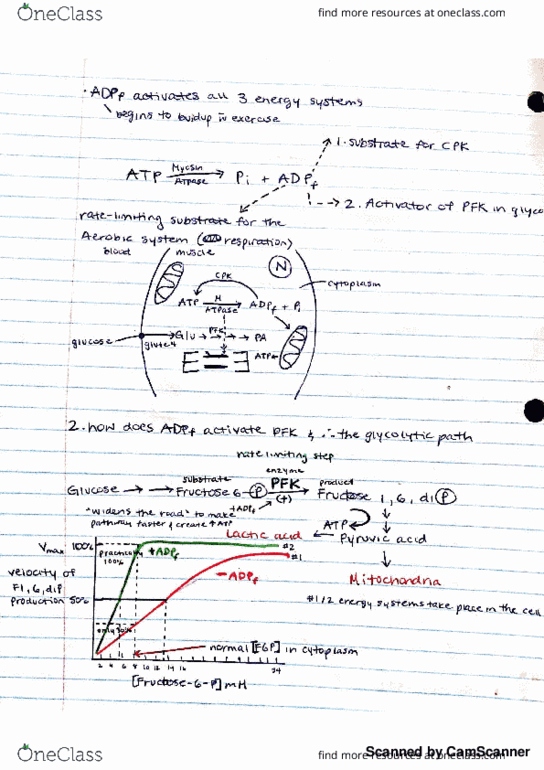 OneClass find more resources at oneclass.com
· ADPf activates all 3 energy systems
begins to buidup in exercise
1. substrate for CPK
ATP Myosin ATPase Pi + ADPf
2. Activator of PFK in glyco
rate-limiting substrate for the
Aerobic system (respiration)
blood muscle
N
cytoplasm
CPK
ATP M ATPase ADPf + Pi
glucose glute4 Glu PFK PA
ATP
2. how does ADPf activate PFK & ∴ the glycolytic path
rate limiting step
substrate enzyme product
Glucose → → Fructose 6-P PFK (+) Fructose 1,6, di P
+ADPf
"widens the road" to make
pathway faster & create ↑ATP
ATP
Lactic acid ← Pyruvic acid
Vmax 100% practically 100% +ADPf #2
#1
-ADPf
Mitochondria
velocity of
F1,6,dip
production 50%
#1/2 energy systems take place in the cell
only
normal [F6P] in cytoplasm
2 4 6 8 10 12 14 16 24
[Fructose-6-P] mM
Scanned by CamScanner
OneClass find more resources at oneclass.com